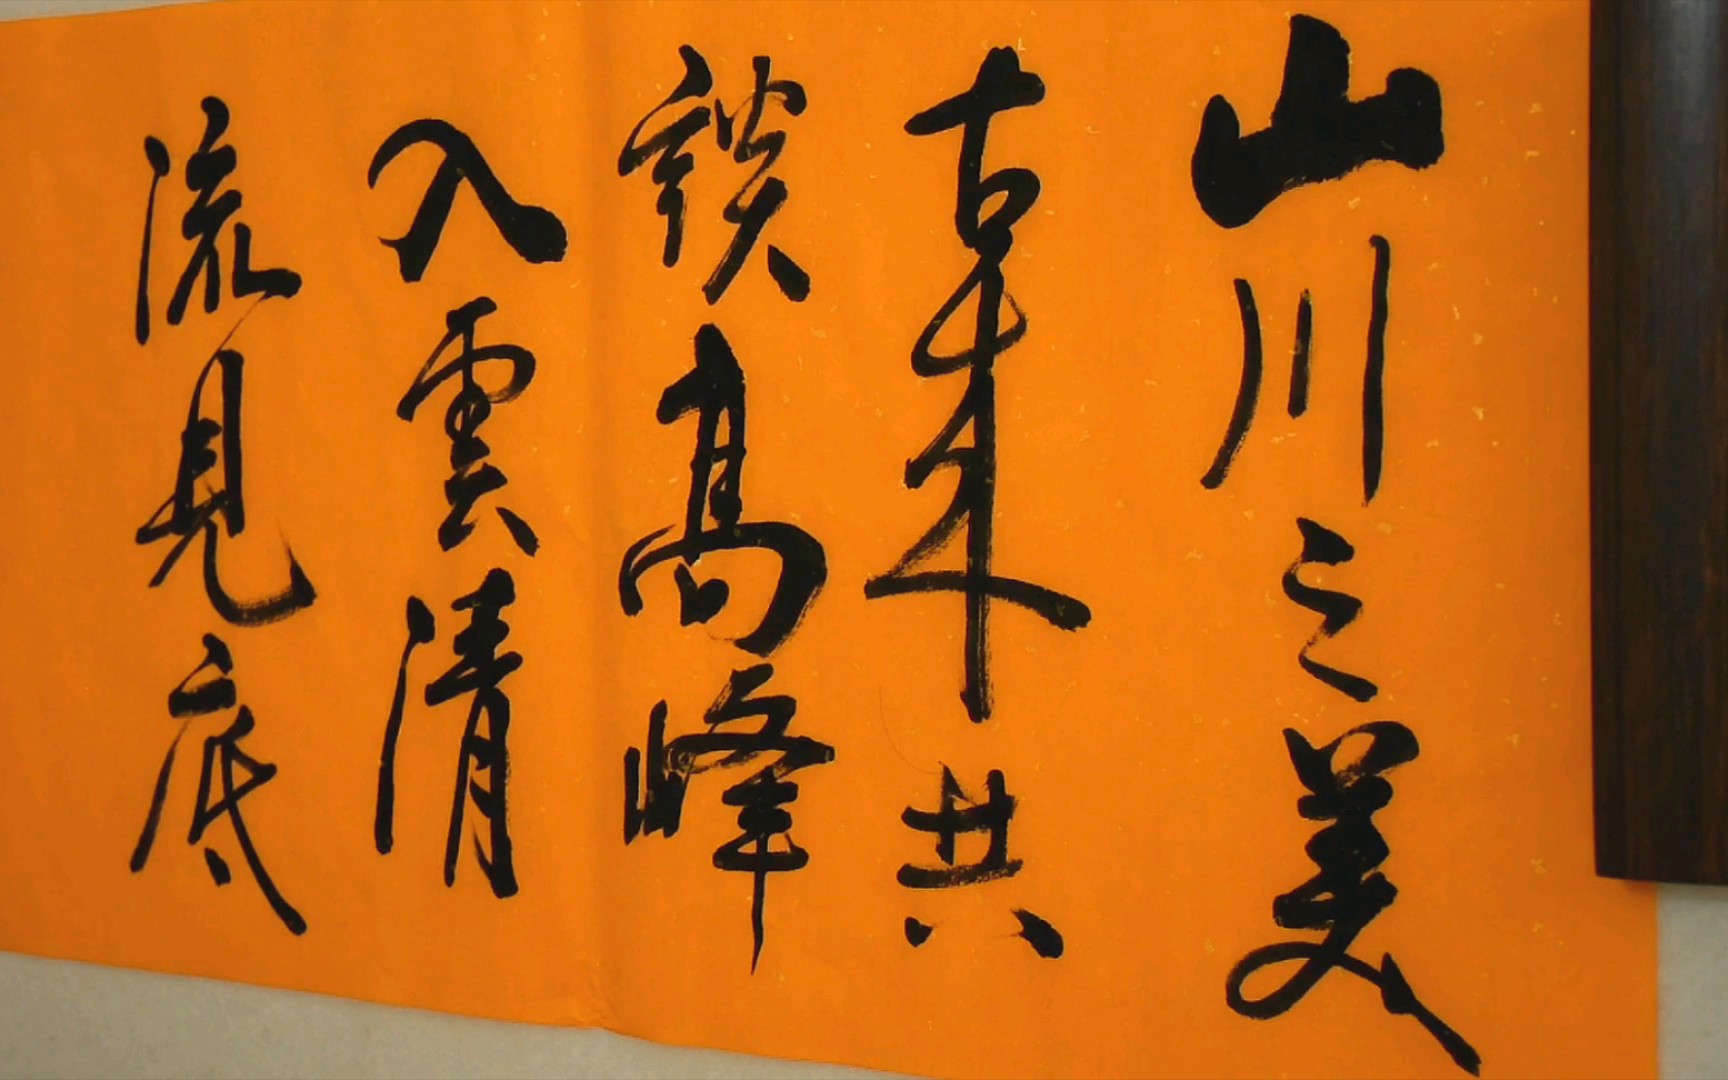 山川之美
古来共
談高峰
入雲清
流見底